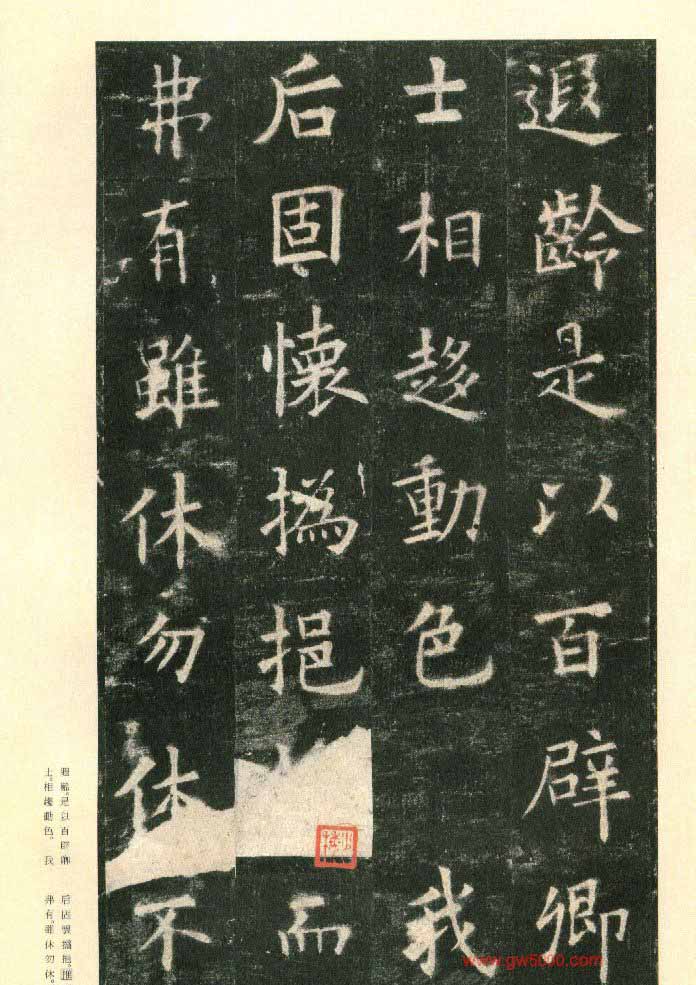 遐齡是以百辟卿
士相趍動色我
后固懷撝挹而
弗有雖休勿休不
遐齡。是以百辟卿
士。相趨動色。我
后固懷撝挹。推
弗有。雖休勿休。
www.gw5000.com